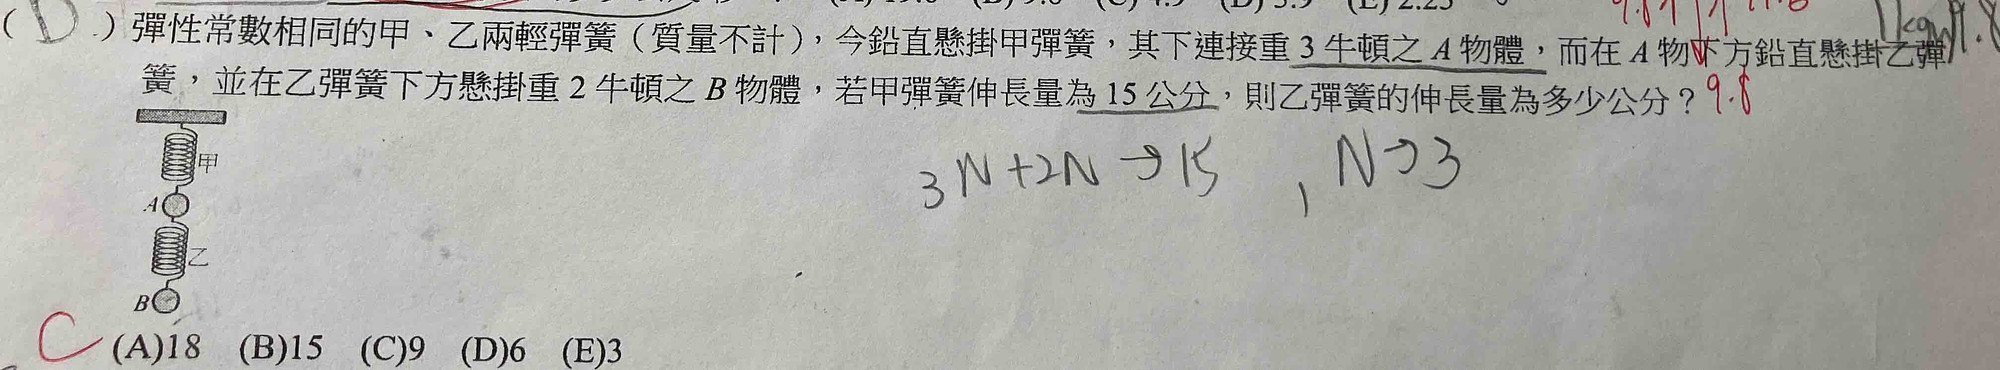 (D) 彈性常數相同的甲、乙兩輕彈簧（質量不計），今鉛直懸掛甲彈簧，其下連接重 3 牛頓之 A 物體，而在 A 物下方鉛直懸掛乙彈
簧，並在乙彈簧下方懸掛重 2 牛頓之 B 物體，若甲彈簧伸長量為 15 公分，則乙彈簧的伸長量為多少公分？ 9.8
3N+2N→15 1N→3
甲
A
乙
B
C (A)18 (B)15 (C)9 (D)6 (E)3